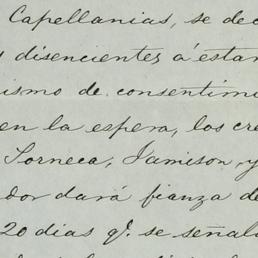 Capellanias, se dec
y disencientes á estar
ismo de consentimi
en la espera, los cre
Torneca, Jamison, y
dor dará fianza de
20 dias qᵉ. se señala